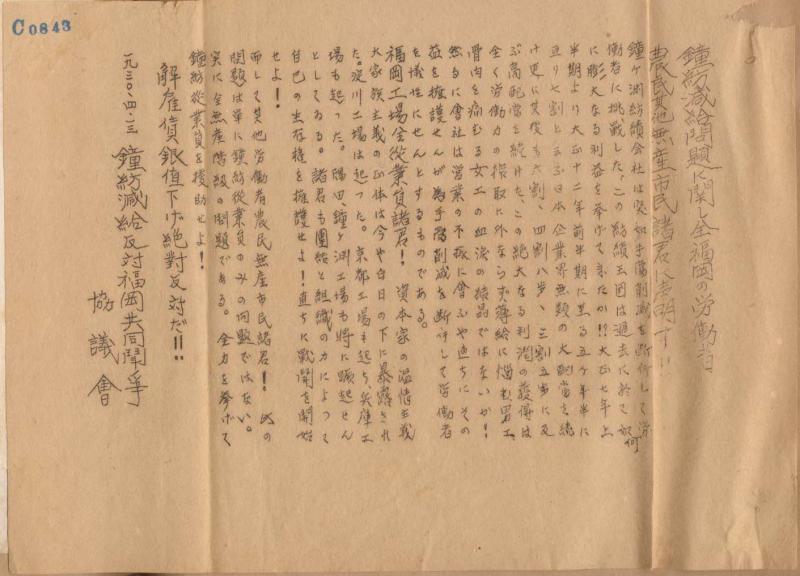 C0843
鐘紡減給問題に関し全福岡の労働者
農民其他無産市民諸君に声明す!!
鐘ヶ渕紡績会社は突如手当削減を断行して労
働者に挑戦した、この紡績王国は過去に於て如何
に膨大なる利益を挙げて来たか!!大正七年上
半期より大正十二年前半期に至る五ヶ年半に
亘り七割と云ふ日本企業界無類の大配当を続
け更に其後も六割、四割八歩、三割五歩に及
ぶ高配当を続けた、この絶大なる利潤の獲得は
全く労働力の搾取に外ならず薄給に悩む男工、
骨肉を痛むる女工の血涙の結晶ではないか!
然るに會社は営業の不振に會ふや直ちにその
益を擁護せんが為手当削減を断行して労働者
を犠性にせんとするものである。
福岡工場全従業員諸君! 資本家の温情主義
大家族主義の正体は今や白日の下に暴露され
た。淀川工場は起った。京都工場も起ち、兵庫工
場も起った。隅田、鐘ヶ渕工場も将に蹶起せん
としてゐる。諸君も團結と組織の力によって
自己の生存権を擁護せよ!直ちに戦闘を開始
せよ!
而して其他労働者農民無産市民諸君! 此の
問題は単に鐘紡従業員のみの問題ではない。
実に全無産階級の問題である。全力を挙げて
鐘紡従業員を援助せよ!
解雇賃銀値下げ絶對反対だ!!
一九三〇・四・一三 鐘紡減給反対福岡共同闘争
協議會